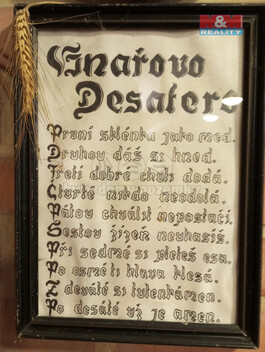 M&M
REALITY
Vinařovo
Desatero
První sklénka jako med.
Druhou dáš si hned.
Třetí dobré chuti dodá.
Čtvrté nikdo neodolá.
Pátou chválit nepostačí.
Šestou žízeň neuhasíš.
Při sedmé si pleteš esa.
Po osmé ti hlava klesá.
V deváté si tvientkrámen.
Po desáté už je amen.